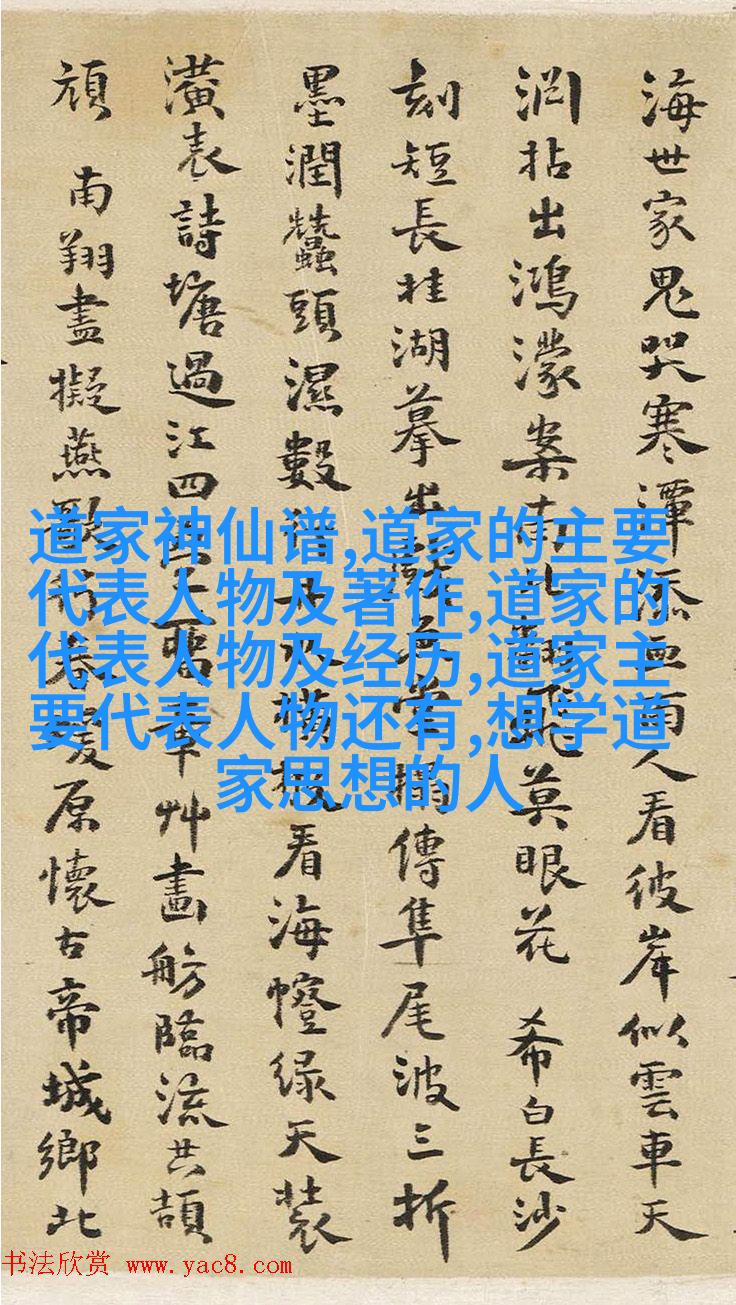 海世家鬼哭寒潭添血雨人看彼岸似雲車天
洞拈出鴻濛案南北翻飛莫眼花 希白長沙
刻短長桂湖摹出
搨傳隼尾波三折
墨潤蠶頭濕數
看海幢綠天裝
潢表詩塘過江四
章艸畫舫臨流共頡
頏 南翔盡擬燕歌行卷
爰原懷古帝城鄉北
道家神仙谱,道家的主要
代表人物及著作,道家的
代表人物及经历,道家主
要代表人物还有,想学道
家思想的人
书法欣赏 www.yac8.com